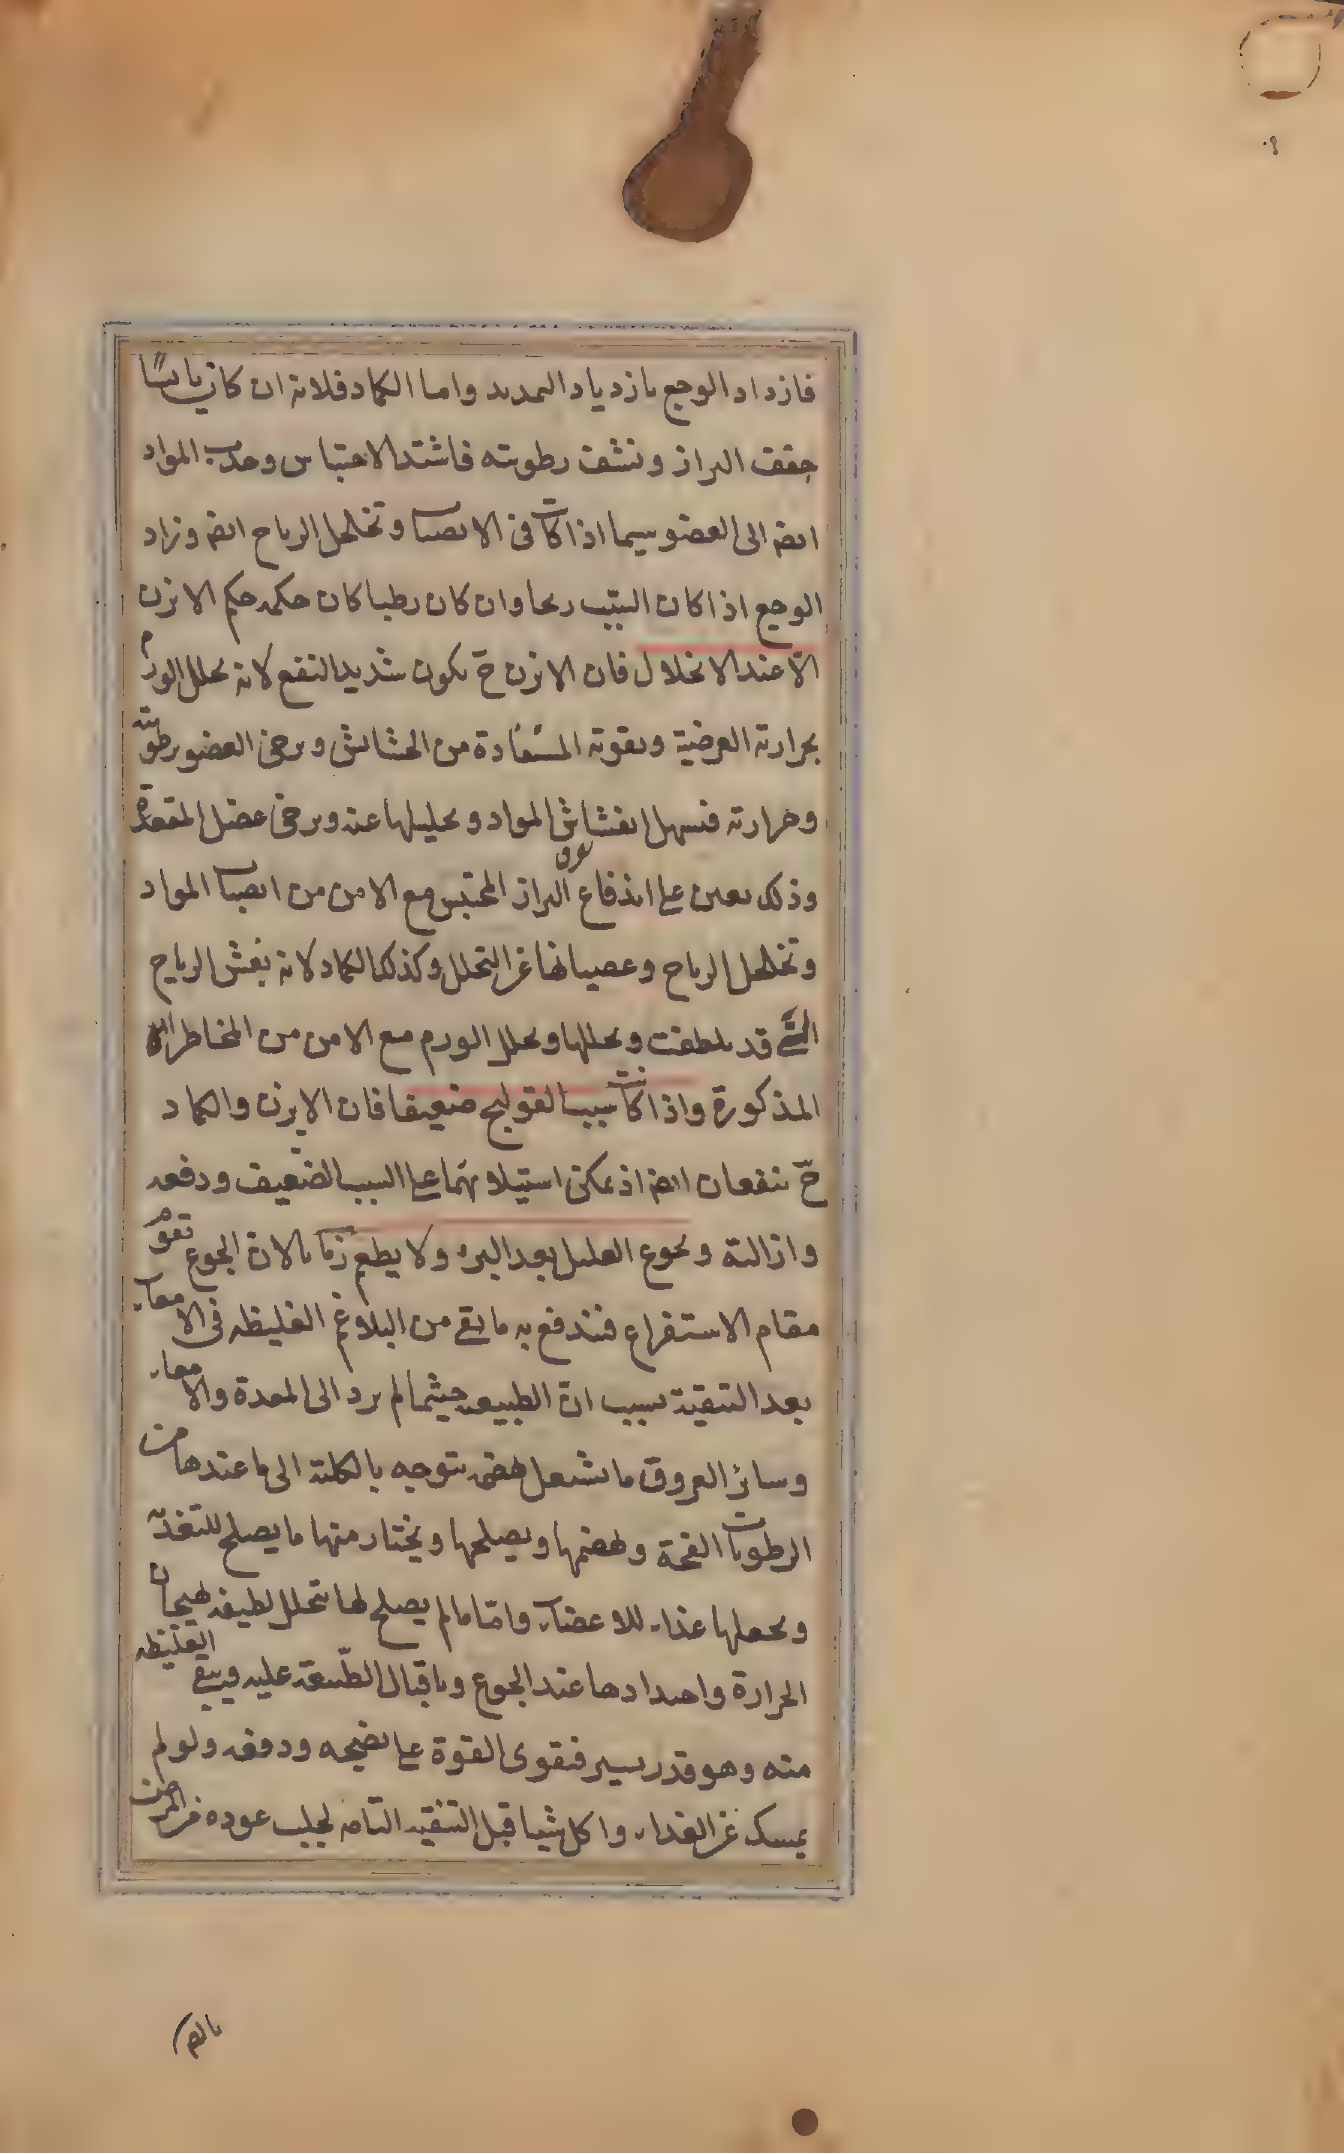 فازداد الوجع بازدياد التمديد واما الكماد فلانه ان كان يابسًا
جفف البراز ونشف رطوبته فاشتد الاحتباس وجذب المواد
ايضا الى العضو سيما اذا كانت فى الانصباب وتخلخل الرياح ايضا وزاد
الوجع اذا كان السبب ريحا وان كان رطبا كان حكمه حكم الابزن
الّا عند الانحلال فان الابزن ح يكون شديد النفع لانه يحلل الورم
بحرارته العرضية وبقوته المستفادة من الحشائش ويرخى العضو برطوبته
وحرارته فيسهل انفشاش المواد وتحليلها عنه ويرخى عضل المقعدة
وذلك يعين على اندفاع البراز المحتبس مع الامن من انصباب المواد
وتخلخل الرياح وعصيانها عن التحلل وكذلك الكماد لانه يفش الرياح
التى قد تلطفت ويحللها ويحلل الورم مع الامن من المخاطرات
المذكورة واذا كانت سبب القولنج ضعيفا فان الابزن والكماد
ح ينفعان ايضا اذ يمكن استيلاؤهما على السبب الضعيف ودفعه
وازالته ويجوع العليل بعد البرء ولا يطعم زمانا لان الجوع يقوم
مقام الاستفراغ فيندفع به ما بقى من البلاغم الغليظه فى الامعاء
بعد التنقية بسبب انّ الطبيعه حيثما لم يرد الى المعدة والامعاء
وسائر العروق ما يشتغل بهضمه يتوجه بالكلية الى ما عندها من
الرطوبات الفجة وتهضمها ويصلحها ويختار منها ما يصلح للتغذّيه
ويجعلها غذاء للاعضاء وامّا ما لم يصلح لها يتحلل لطيفه لهيجان
الحرارة واحتدادها عند الجوع وباقبال الطّبيعة عليه ويبقى الغليظه
منه وهو قدر يسير فتقوى القوة على نضجه ودفعه ولو لم
يمسك عن الغذاء واكل شيا قبل التنقيه التامه لجلب عوده من المرض